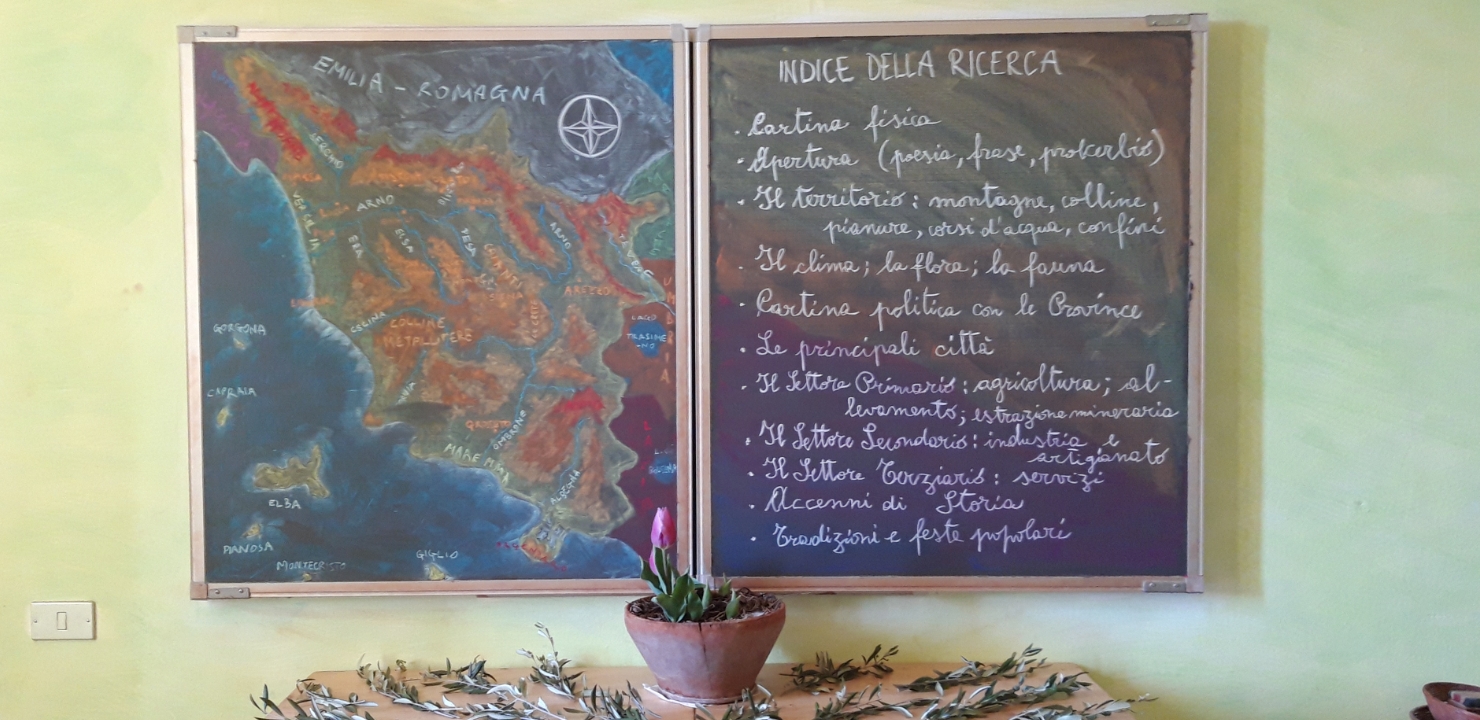 EMILIA - ROMAGNA
SERCHIO
VERSILIA
ARNO
ERA
ELSA
PESA
CHIANTI
SIENA
ARNO
TEVERE
AREZZO
CECINA
COLLINE
METALLIFERE
UMBRIA
LAGO
TRASIME
-NO
GORGONA
CAPRAIA
OMBRONE
MAREMMA
ALBEGNA
ELBA
PIANOSA
MONTECRISTO
GIGLIO
INDICE DELLA RICERCA
. Cartina fisica
. Apertura (poesia, frase, proverbio)
. Il territorio : montagne, colline,
pianure, corsi d'acqua, confini
. Il clima ; la flora ; la fauna
. Cartina politica con le Province
. Le principali città
. Il Settore Primario : agricoltura ; al-
levamento ; estrazione mineraria
. Il Settore Secondario : industria e
artigianato
. Il Settore Terziario : servizi
. Accenni di Storia
. Tradizioni e feste popolari